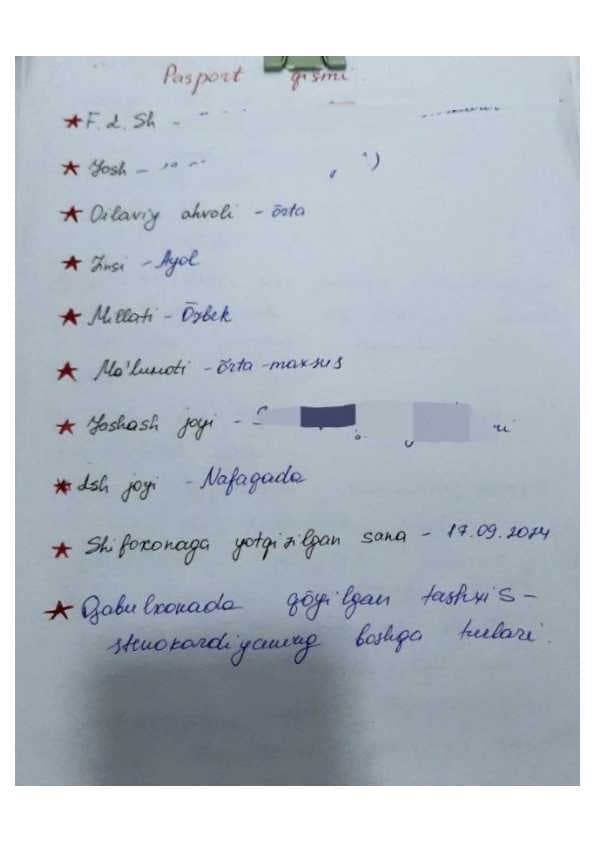 Pasport qismi
★ F. I. Sh -
★ Yosh -
★ Oilaviy ahvoli - o̅rta
★ Jinsi - Ayol
★ Millati - O̅zbek
★ Ma'lumoti - o̅rta-maxsus
★ Yashash joyi -
★ Ish joyi - Nafaqada
★ Shifoxonaga yotqizilgan sana - 17.09.2024
★ Qabulxonada qo̅yilgan tashxis -
stenokardiyaning boshqa turlari.